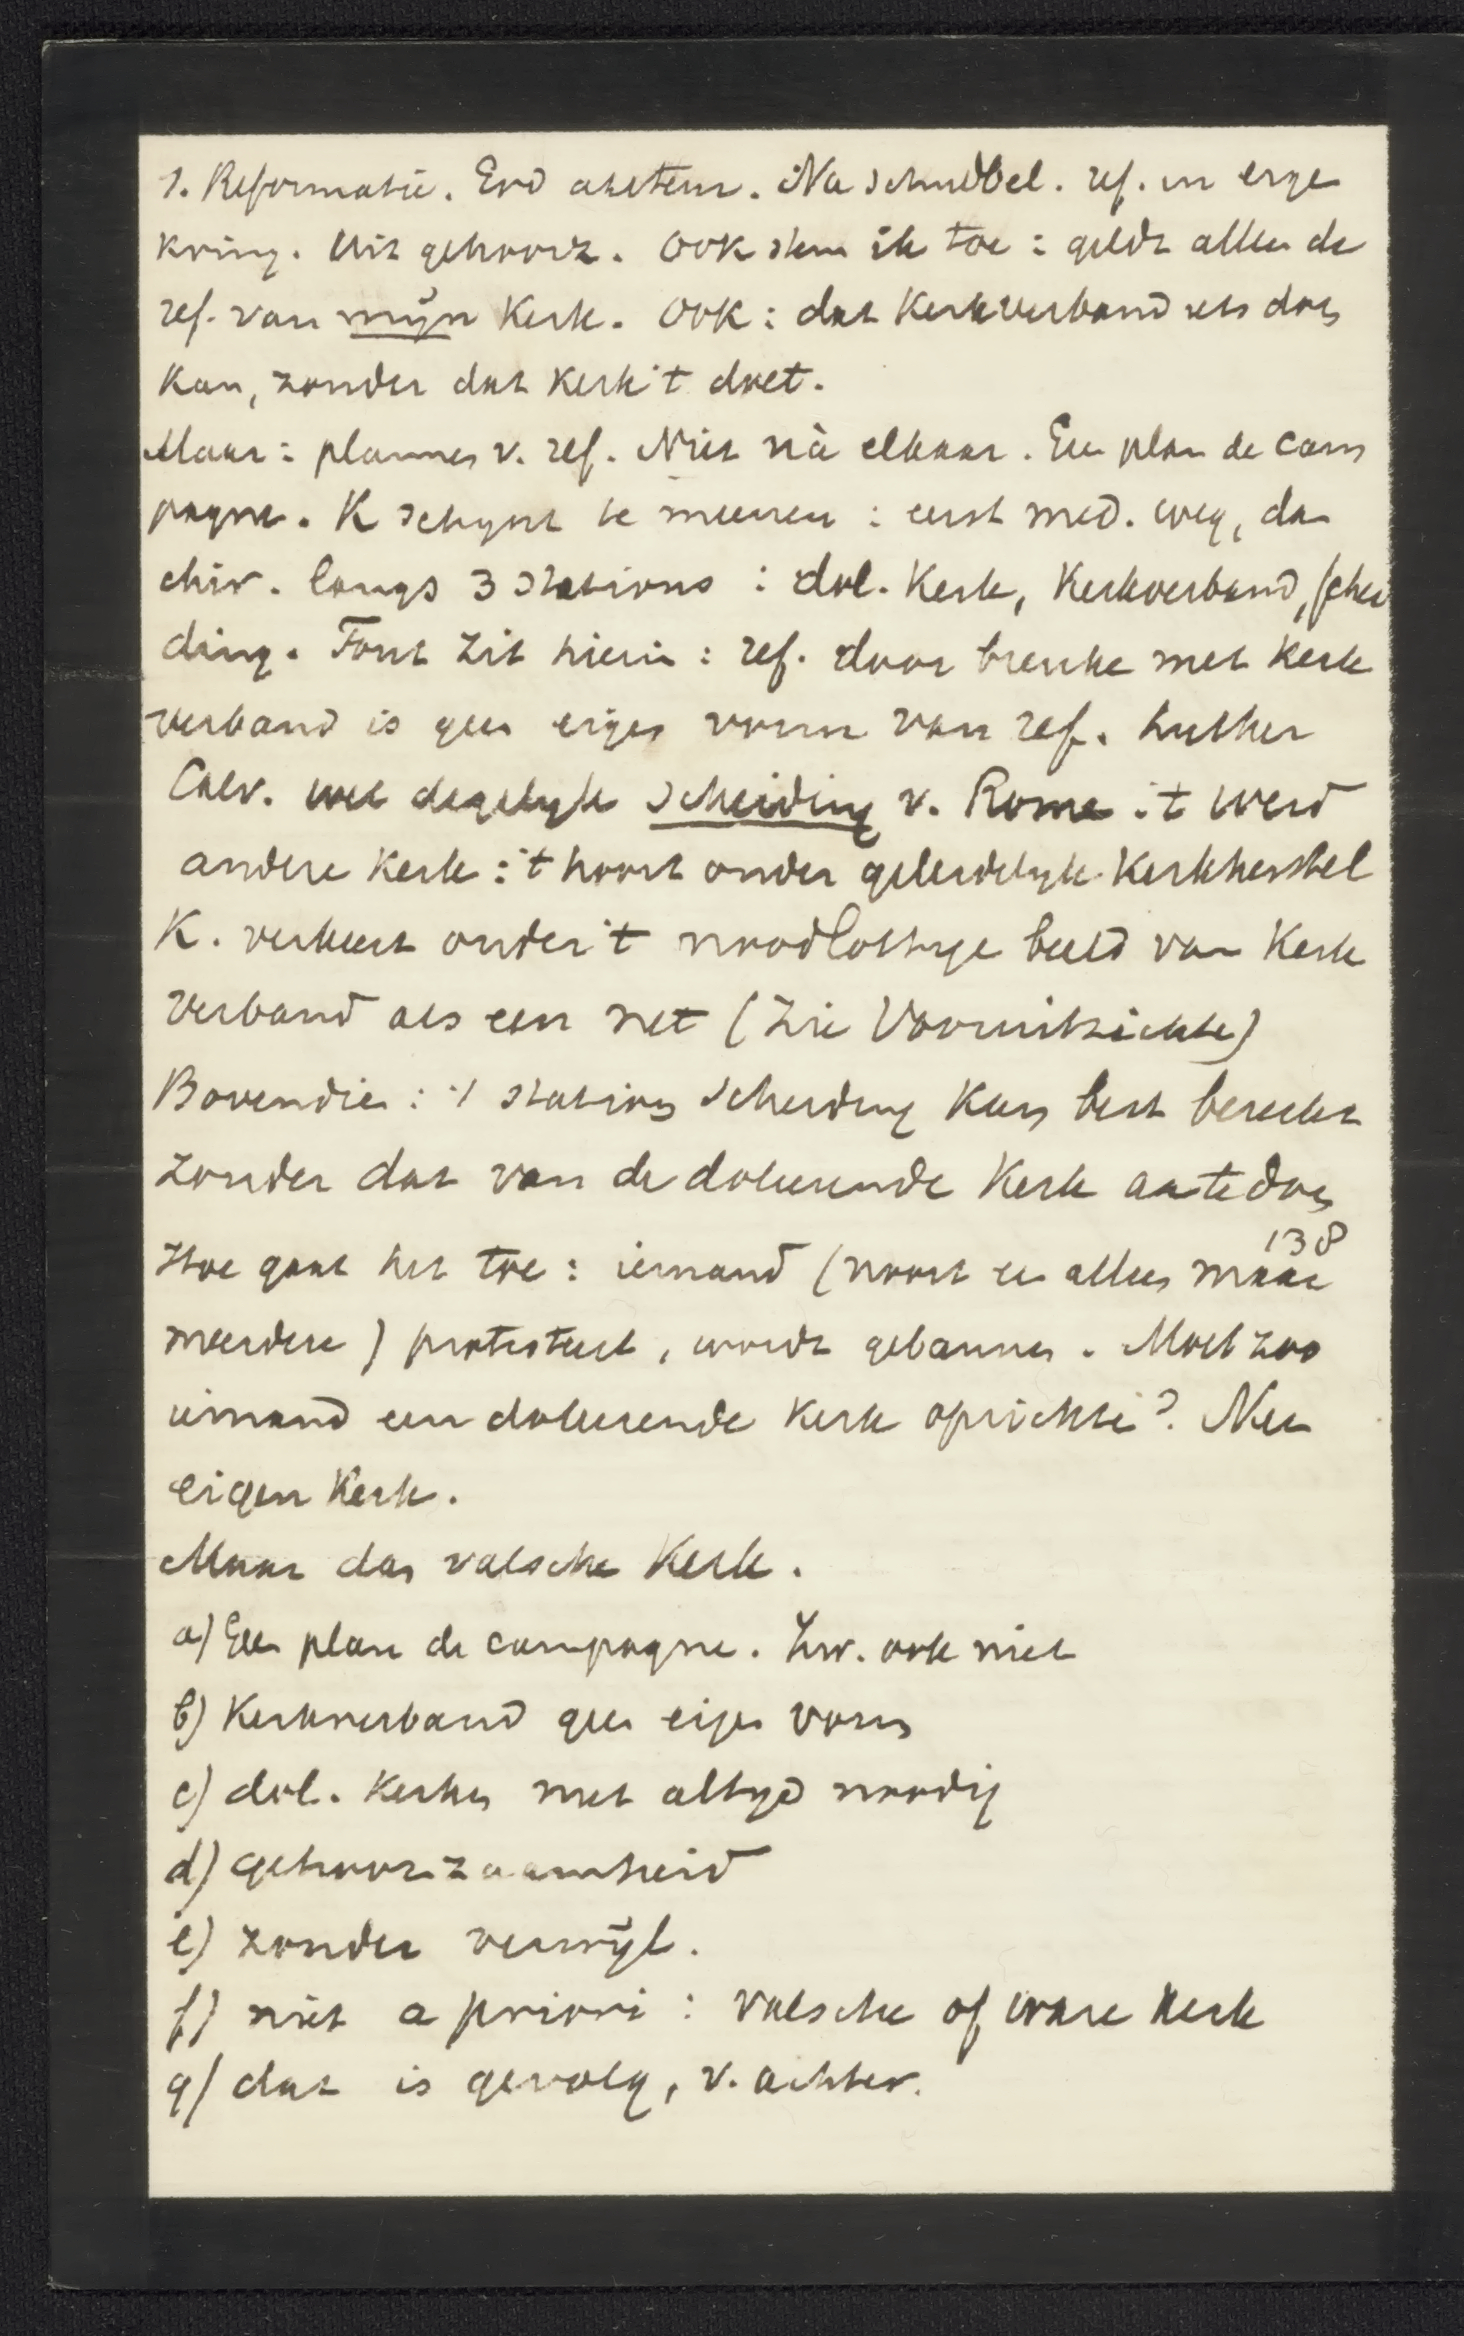 1. Reformatie. Erd. Na schuldbel. ref. in eige
kring. Uit gehoorz. Ook stem ik toe : geldt allee de
ref. van mijn Kerk. Ook : dat Kerkverband iets doen
kan, zonder dat Kerk 't doet.
Maar : plannen v. ref. Niet nà elkaar. Een plan de cam
pagne. K schijnt te meenen : eerst med. weg, dan
chir. langs 3 stations : dol. Kerk, Kerkverband, schei
ding. Fout zit hierin : ref. door breuke met Kerk
verband is geen eigen vorm van ref. Luther
Calv. wel degelijk scheiding v. Rome : 't werd
andere Kerk : 't hoort onder geleidelijk Kerkherstel
K. verkeert onder 't noodlottige beeld van Kerk
verband als een net (Zie Vooruitzichte)
Bovendien : 't station scheiding kan best bereikt
zonder dat van de doleerende Kerk aantedoen
138
Hoe gaat het toe : iemand (nooit een alleen maar
meerdere) protesteert, wordt gebannen. Moet zoo
iemand een doleerende Kerk oprichte? Nee
eigen Kerk.
Maar dan valsche Kerk.
a) Een plan de campagne. Zw. ook niet
b) Kerkverband geen eigen vorm
c) dol. Kerken niet altijd noodig
d) gehoorzaamheid
e) zonder verwijl.
f) niet a priori : valsche of ware Kerk
g) dat is gevolg, v. achter.